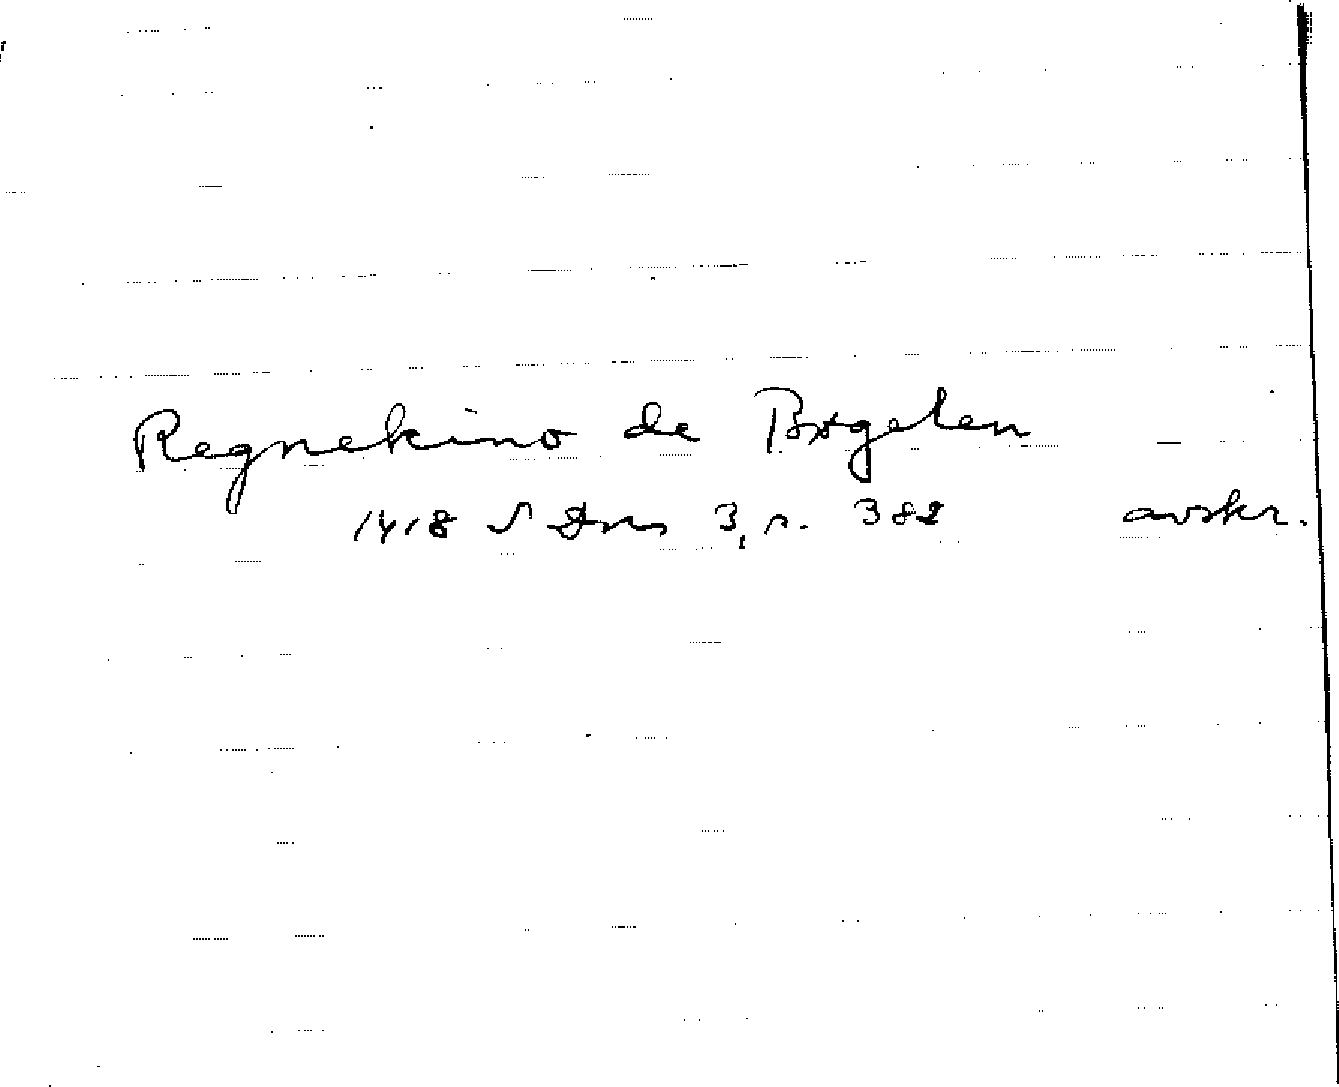 Regnekino de Bogelen
1418 S Dns 3, s. 382 avskr.